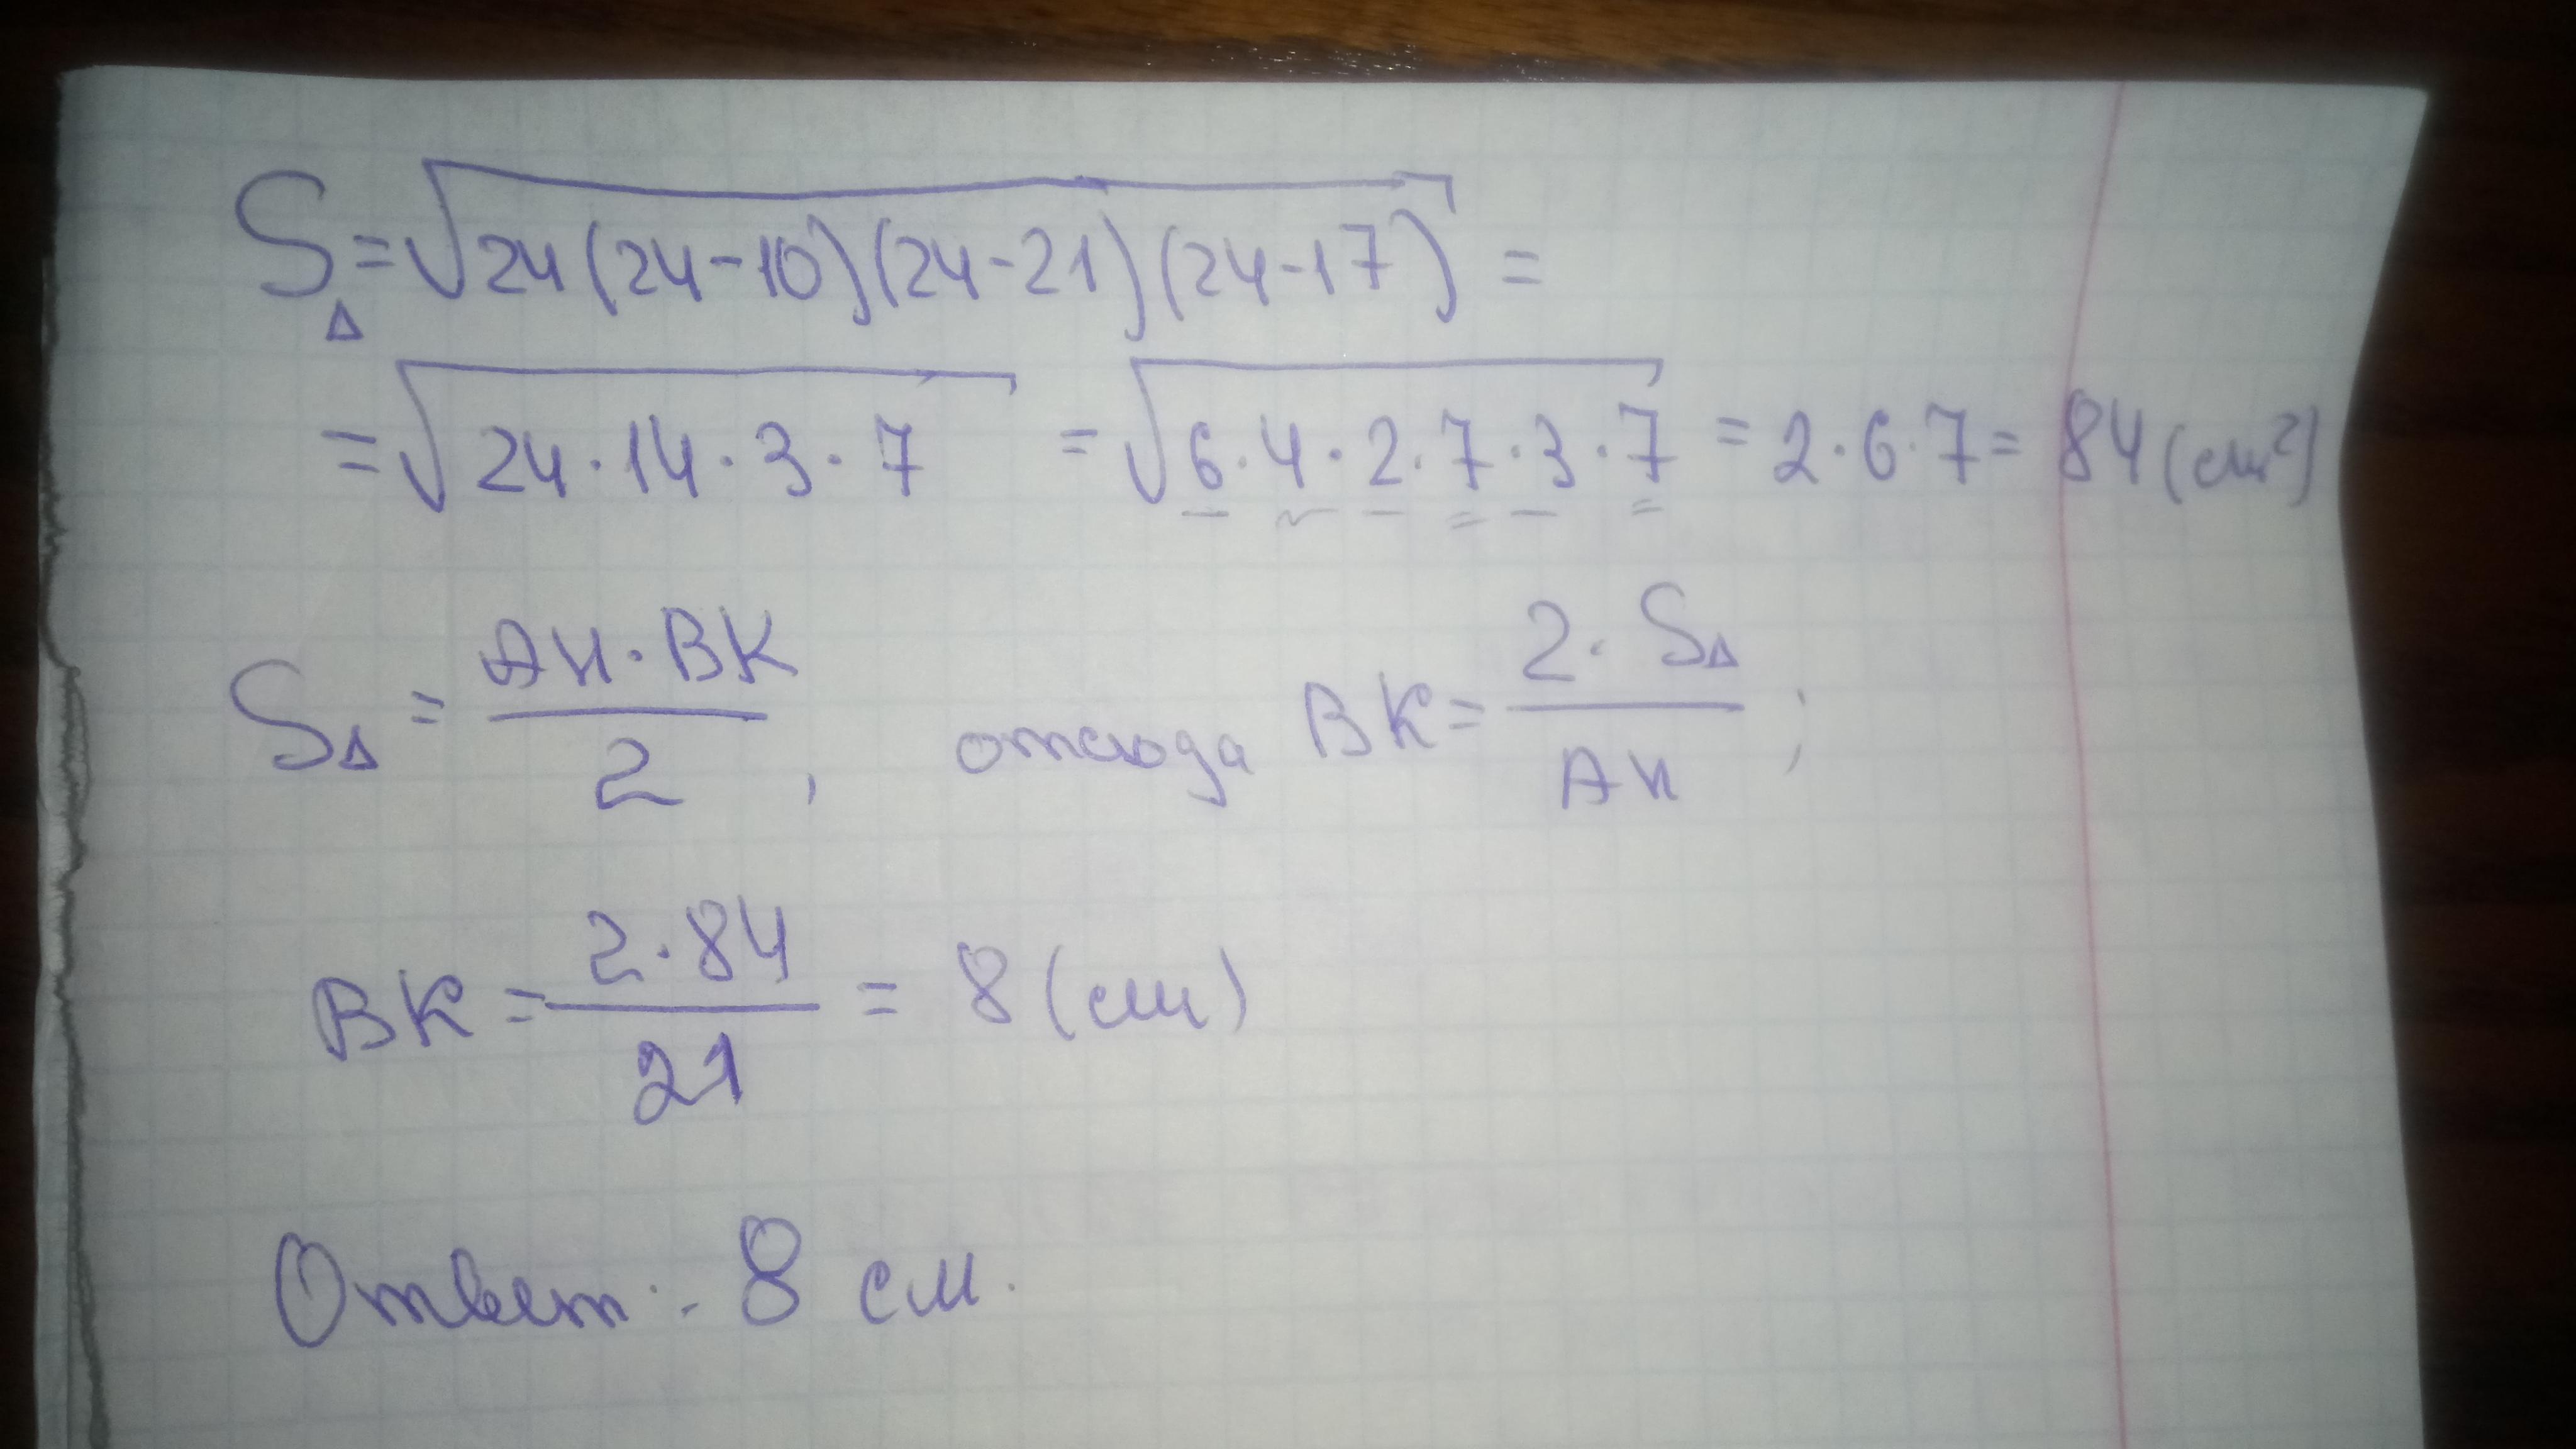 S△ = √24(24-10)(24-21)(24-17) =
= √24·14·3·7 = √6·4·2·7·3·7 = 2·6·7 = 84 (см²)
S△ = AH·BK / 2 , отсюда BK = 2·S△ / AH ;
BK = 2·84 / 21 = 8 (см)
Ответ: 8 см.